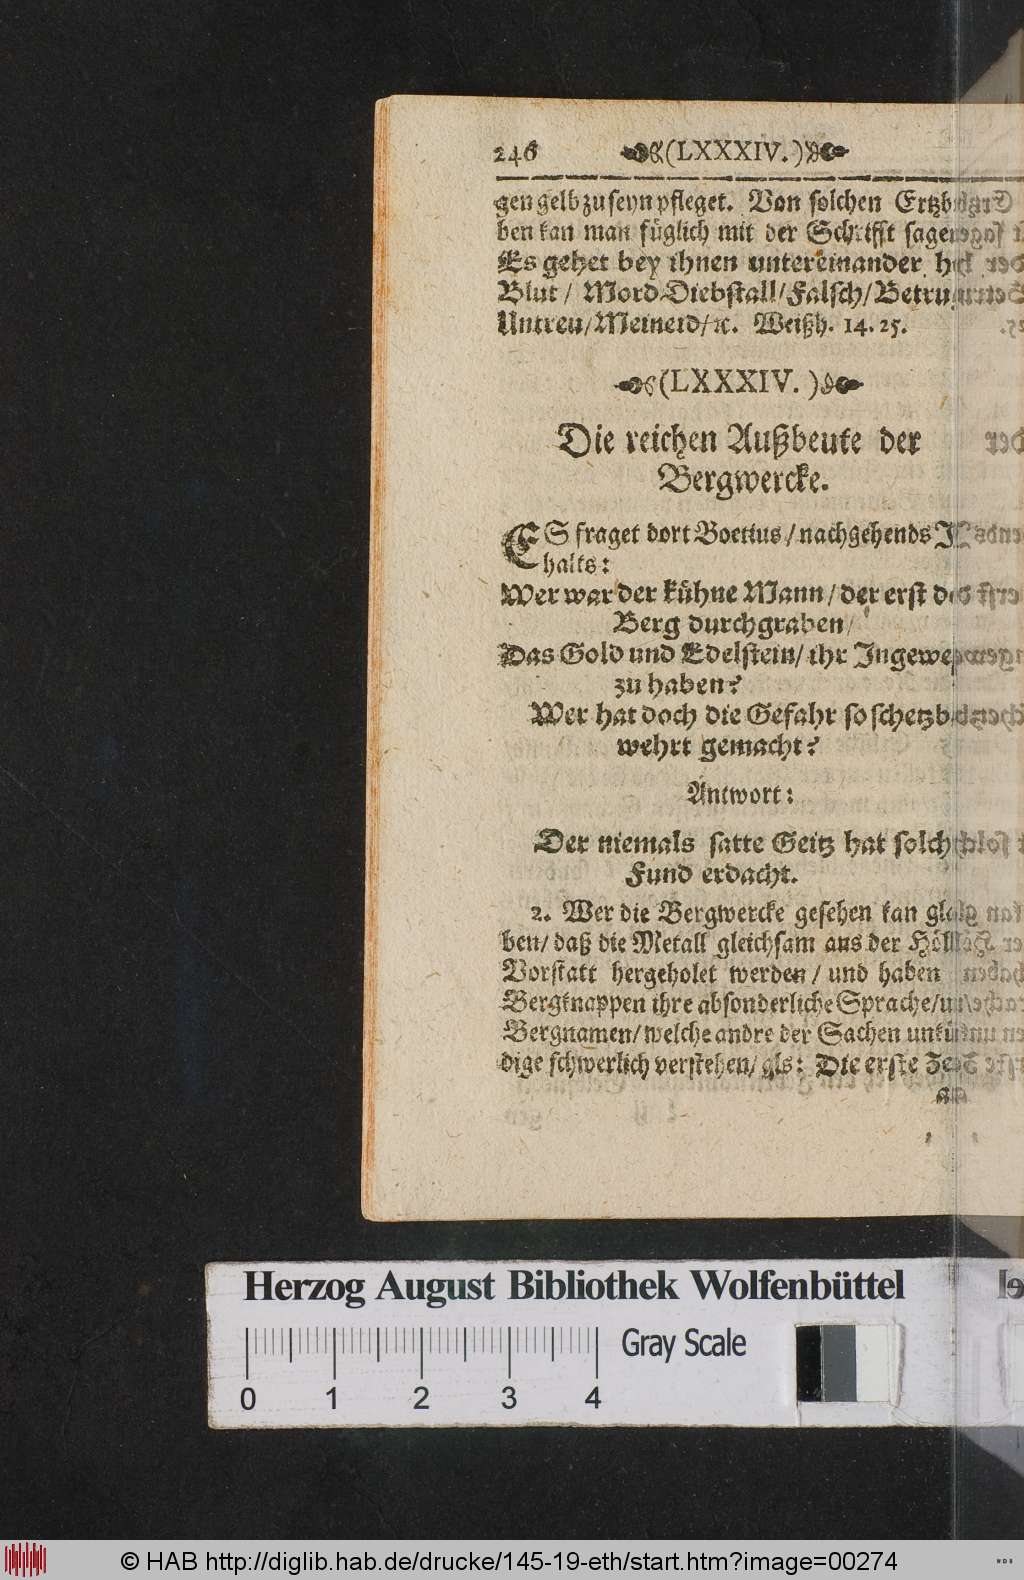 246 (LXXXIV.)
gen gelb zu seyn pfleget. Von solchen
ben kan man füglich mit der Schrifft
Es gehet bey ihnen untereinander
Blut / Mord Diebstall / Falsch /
Untreu / Meineid / ꝛc. Weißh. 14. 25.
(LXXXIV.)
Die reichen Außbeute der
Bergwercke.
ES fraget dort Boetius / nachgehends
halts:
Wer war der kühne Mann / der erst
Berg durchgraben /
Das Gold und Edelstein / ihr
zu haben?
Wer hat doch die Gefahr so
wehrt gemacht?
Antwort:
Der niemals satte Geitz hat
Fund erdacht.
2. Wer die Bergwercke gesehen kan
ben / daß die Metall gleichsam aus der
Vorstatt hergeholet werden / und haben
Bergknappen ihre absonderliche Sprache /
Bergnamen / welche andre der Sachen
dige schwerlich verstehen / als: Die erste
Herzog August Bibliothek Wolfenbüttel
Gray Scale
0 1 2 3 4
© HAB http://diglib.hab.de/drucke/145-19-eth/start.htm?image=00274